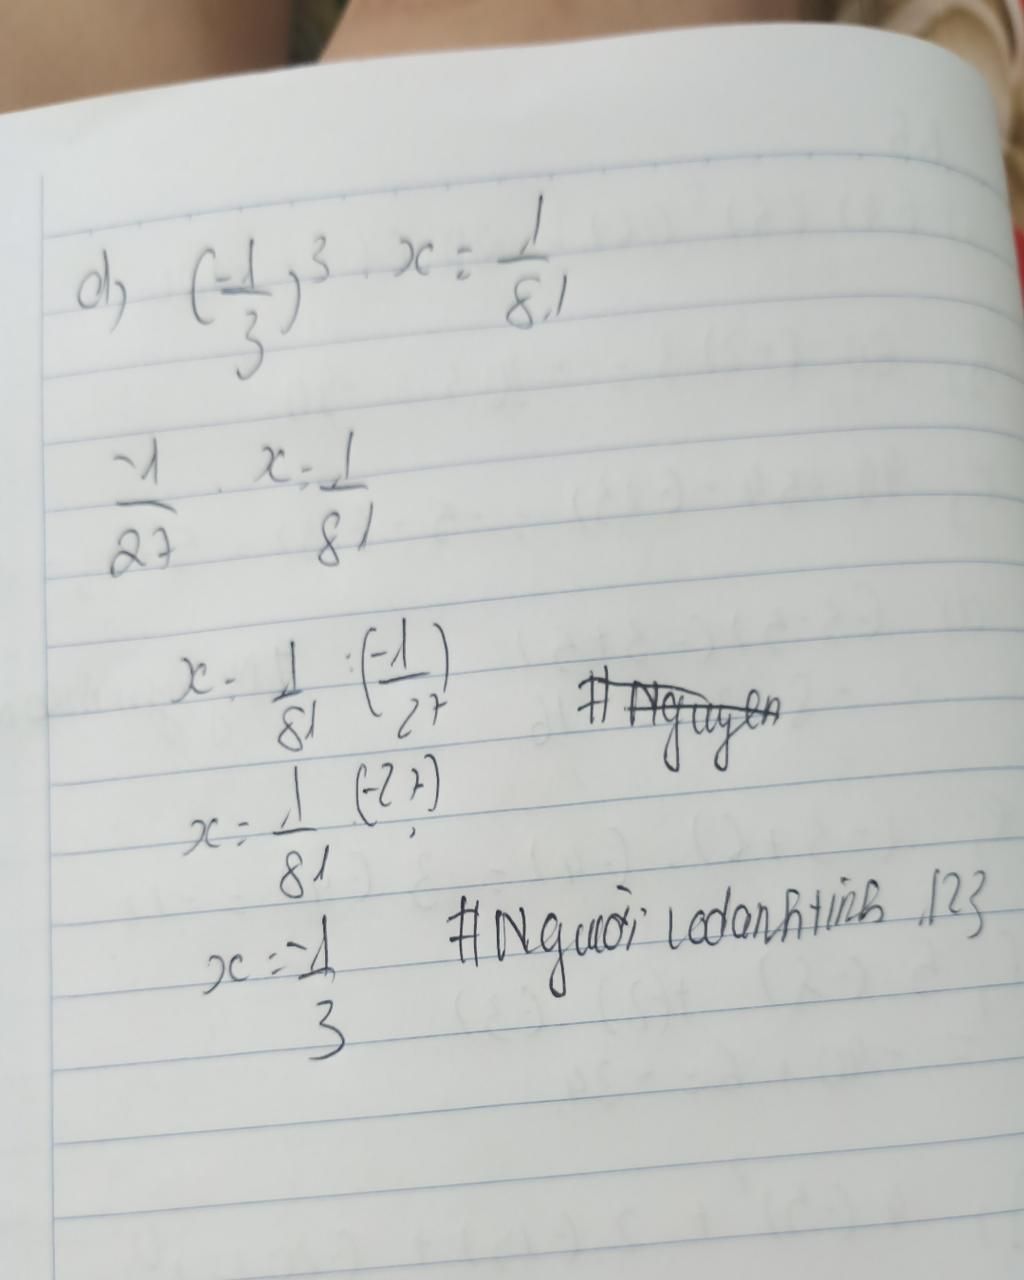 d, (-1/3)³ . x = 1/81
-1/27 . x = 1/81
x = 1/81 : (-1/27)
# Nguyen
x = 1/81 . (-27)
x = -1/3
# Người codanhtinh .123